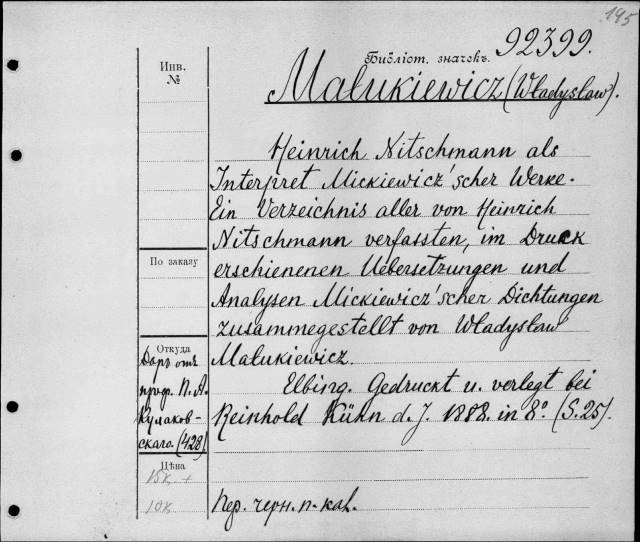 195
Библіот. значекъ. 92399.
Инв.
№
Małukiewicz (Władysław).
Heinrich Nitschmann als
Interpret Mickiewicz'scher Werke.
Ein Verzeichnis aller von Heinrich
Nitschmann verfassten, im Druck
erschienenen Uebersetzungen und
Analysen Mickiewicz'scher Dichtungen
zusammegestellt von Władysław
Małukiewicz.
Elbing. Gedruckt u. verlegt bei
Reinhold Kühn d. J. 1888. in 8º. (S. 25).
Пер. черн. п-кал.
По заказу
Откуда
Даръ отъ
проф. П. А.
Кулаков-
скаго. (428)
Цѣна
15к +
10к